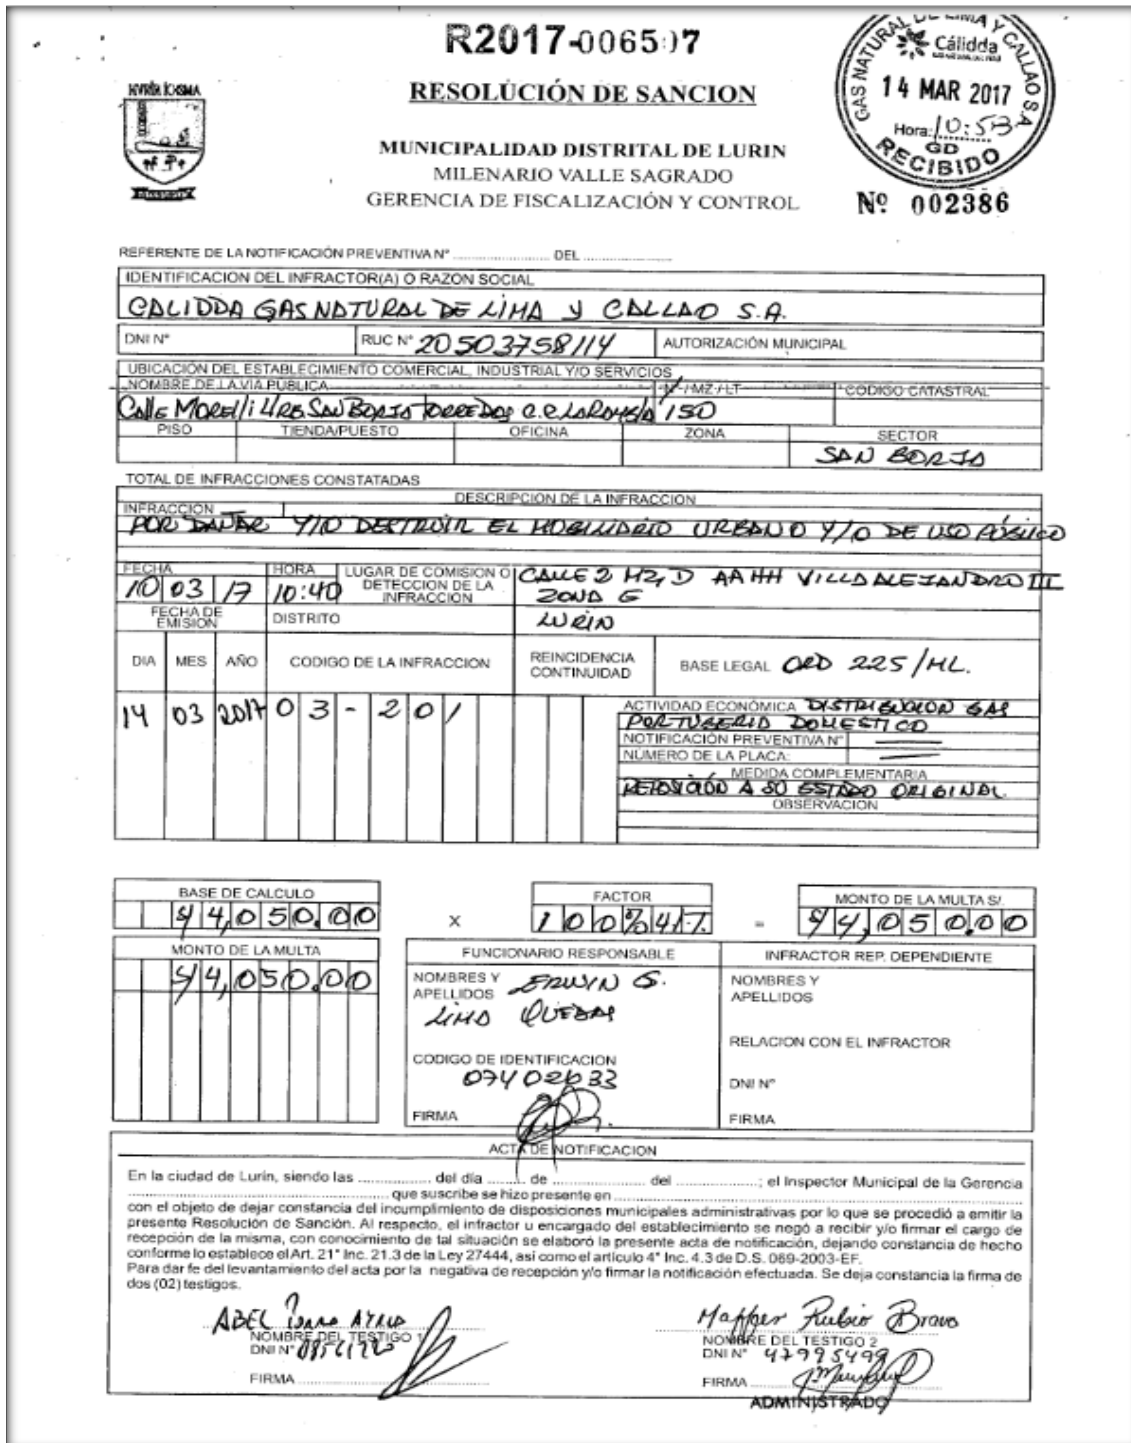 R2017-0065 7
RESOLUCIÓN DE SANCION
MUNICIPALIDAD DISTRITAL DE LURIN
MILENARIO VALLE SAGRADO
GERENCIA DE FISCALIZACIÓN Y CONTROL
GAS NATURAL DE LIMA Y CALLAO S.A.
Cálidda
14 MAR 2017
Hora: 10:53
GD
RECIBIDO
Nº 002386
REFERENTE DE LA NOTIFICACIÓN PREVENTIVA N° ........................ DEL ........................
IDENTIFICACION DEL INFRACTOR(A) O RAZON SOCIAL
CALIDDA GAS NATURAL DE LIMA Y CALLAO S.A.
DNI N° RUC N° 20503758114 AUTORIZACIÓN MUNICIPAL
UBICACIÓN DEL ESTABLECIMIENTO COMERCIAL, INDUSTRIAL Y/O SERVICIOS
NOMBRE DE LA VIA PUBLICA N° / MZ / LT CODIGO CATASTRAL
Calle Morelli URB. SAN BORJA TORRE DOS C.C. 150
PISO TIENDA/PUESTO OFICINA ZONA SECTOR
SAN BORJA
TOTAL DE INFRACCIONES CONSTATADAS
INFRACCION DESCRIPCION DE LA INFRACCION
POR DAÑAR Y/O DESTRUIR EL MOBILIARIO URBANO Y/O DE USO PÚBLICO
FECHA HORA LUGAR DE COMISION O DETECCION DE LA INFRACCION
10 03 17 10:40 CALLE 2 MZ, D AAHH VILLA ALEJANDRO III
ZONA G
FECHA DE EMISION DISTRITO LURIN
DIA MES AÑO CODIGO DE LA INFRACCION REINCIDENCIA CONTINUIDAD BASE LEGAL ORD 225/ML.
14 03 2017 03-201
ACTIVIDAD ECONÓMICA DISTRIBUCION GAS
POR TUBERIA DOMESTICO
NOTIFICACIÓN PREVENTIVA N°
NÚMERO DE LA PLACA:
MEDIDA COMPLEMENTARIA
REPOSICIÓN A SU ESTADO ORIGINAL
OBSERVACION
BASE DE CALCULO FACTOR MONTO DE LA MULTA S/.
S/ 4,050.00 x 100% UIT. = S/ 4,050.00
MONTO DE LA MULTA FUNCIONARIO RESPONSABLE INFRACTOR REP. DEPENDIENTE
S/ 4,050.00
NOMBRES Y APELLIDOS ERWIN G.
LIMA
CODIGO DE IDENTIFICACION
07402633
FIRMA
NOMBRES Y APELLIDOS
RELACION CON EL INFRACTOR
DNI N°
FIRMA
ACTA DE NOTIFICACION
En la ciudad de Lurín, siendo las .................. del día ......... de ...................... del ....................; el Inspector Municipal de la Gerencia
.......................................................... que suscribe se hizo presente en ..........................................................
con el objeto de dejar constancia del incumplimiento de disposiciones municipales administrativas por lo que se procedió a emitir la
presente Resolución de Sanción. Al respecto, el infractor u encargado del establecimiento se negó a recibir y/o firmar el cargo de
recepción de la misma, con conocimiento de tal situación se elaboró la presente acta de notificación, dejando constancia de hecho
conforme lo establece el Art. 21° Inc. 21.3 de la Ley 27444, así como el artículo 4° Inc. 4.3 de D.S. 069-2003-EF.
Para dar fe del levantamiento del acta por la negativa de recepción y/o firmar la notificación efectuada. Se deja constancia la firma de
dos (02) testigos.
ABEL
NOMBRE DEL TESTIGO 1
DNI N°
FIRMA
Maffer Rubio Bravo
NOMBRE DEL TESTIGO 2
DNI N° 47995499
FIRMA
ADMINISTRADO